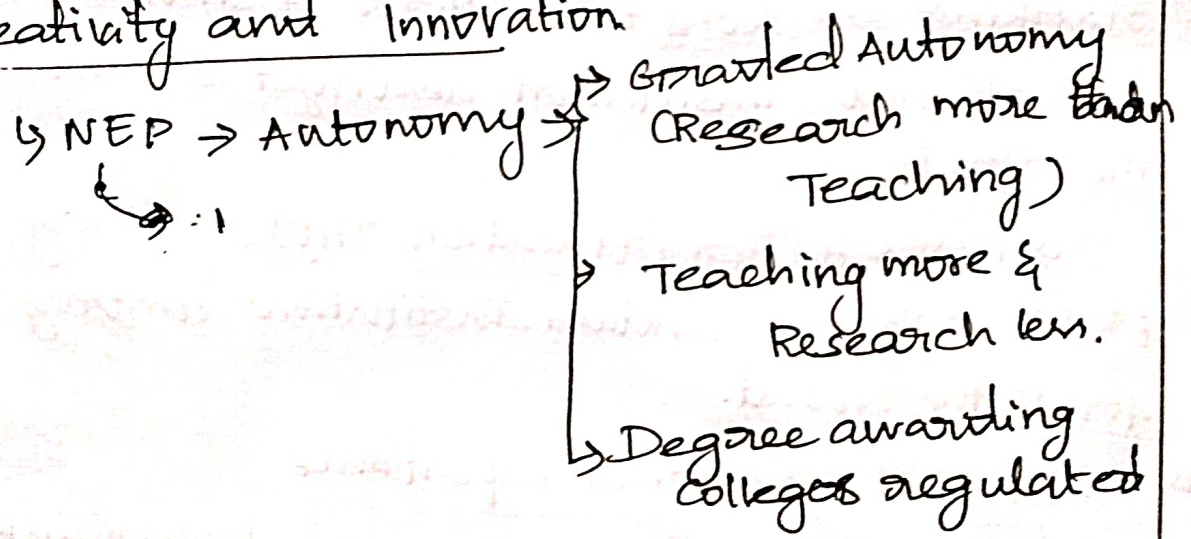 eativity and Innovation
↳ NEP → Autonomy → Graded Autonomy
(Research more than
Teaching)
→ :1
→ Teaching more &
Research less.
↳ Degree awarding
colleges regulated